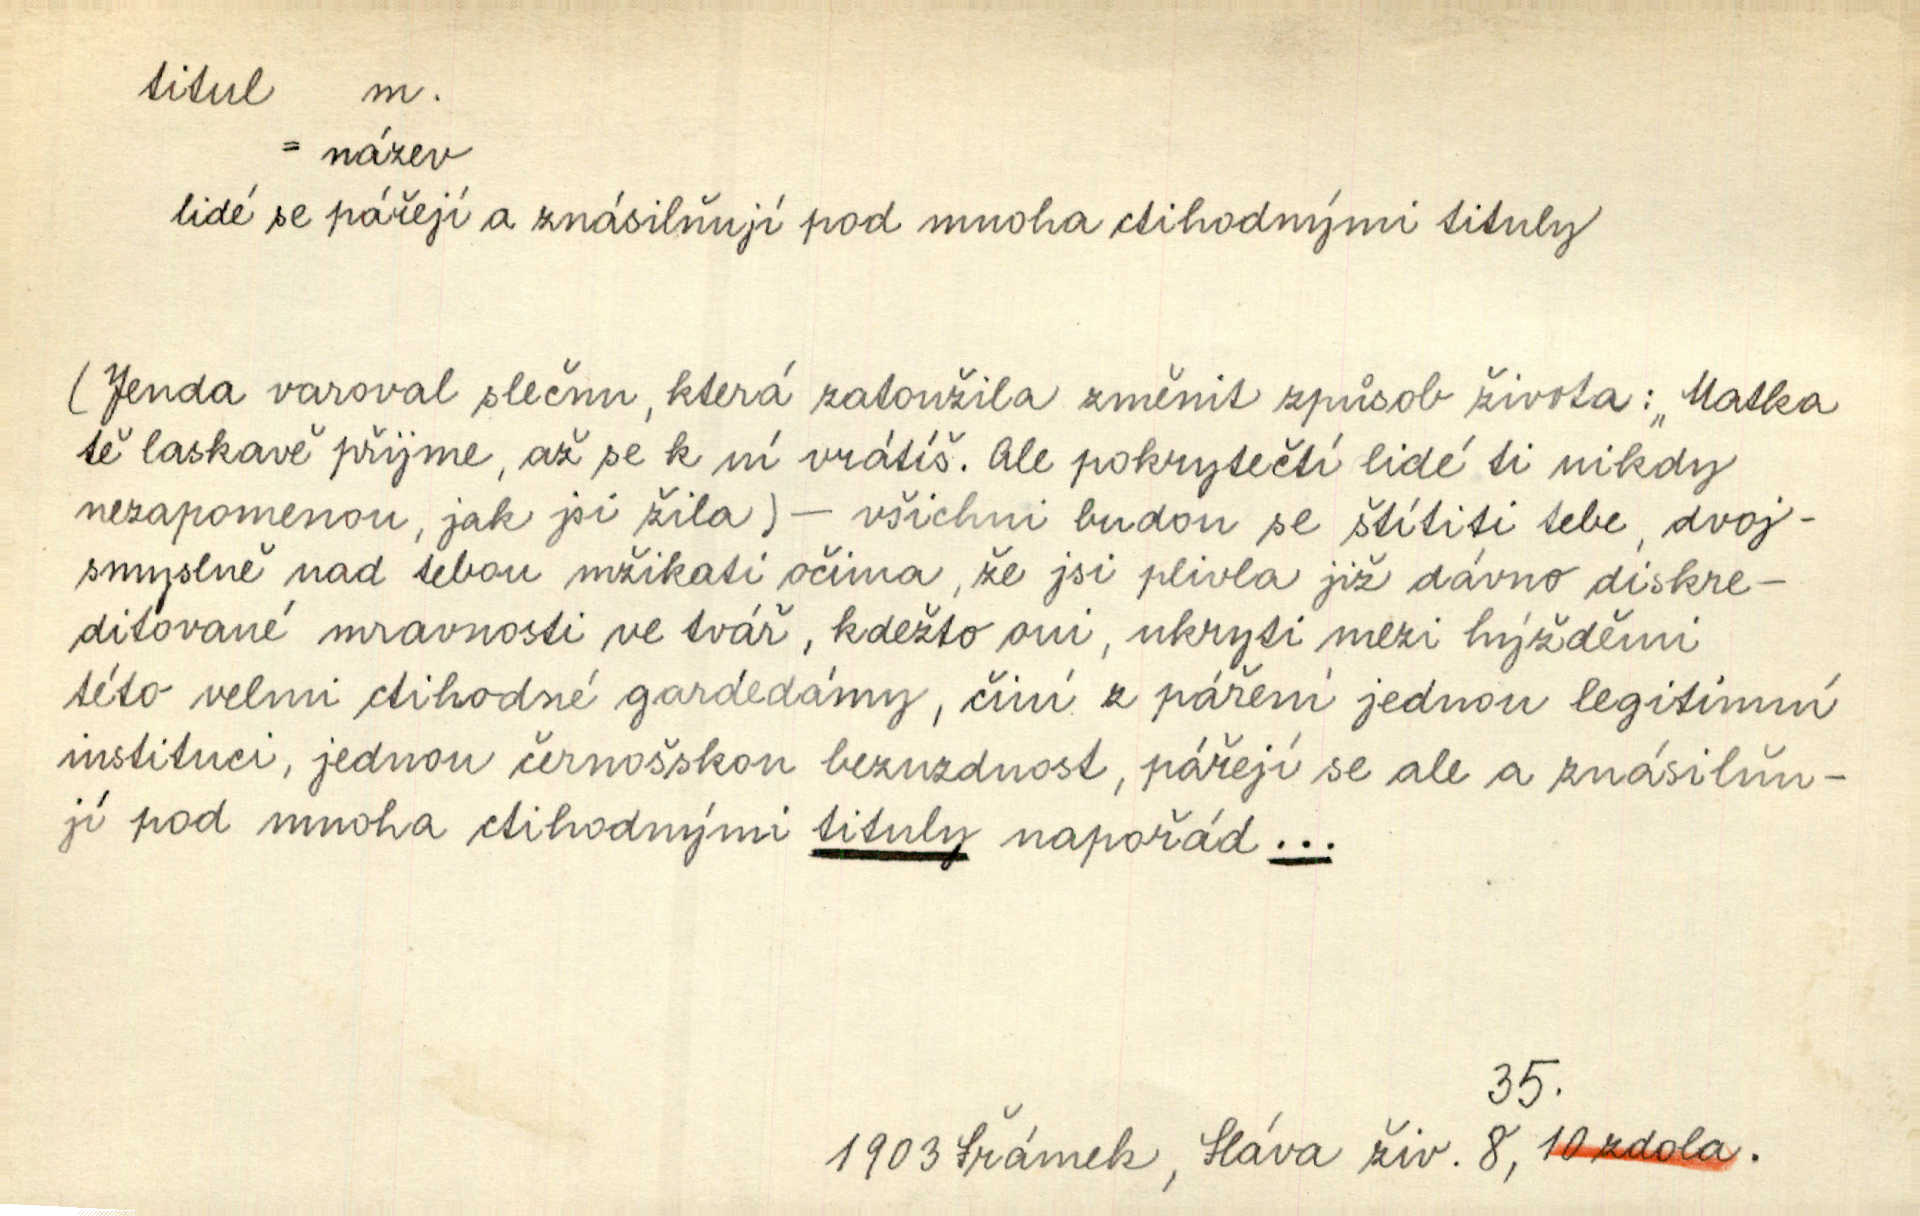 titul m.
= název
lidé se pářejí a znásilňují pod mnoha ctihodnými tituly
(Jenda varoval slečnu, která zatoužila změnit způsob života: „Matka
tě laskavě přijme, až se k ní vrátíš. Ale pokrytečtí lidé ti nikdy
nezapomenou, jak jsi žila) — všichni budou se štítiti tebe, dvoj-
smyslně nad tebou mžikati očima, že jsi plivla již dávno diskre-
ditované mravnosti ve tvář, kdežto oni, ukryti mezi hýžděmi
této velmi ctihodné gardedámy, činí z páření jednou legitimní
instituci, jednou černošskou bezuzdnost, pářejí se ale a znásilňu-
jí pod mnoha ctihodnými tituly napořád ...
35.
1903 Šrámek, Sláva živ. 8, 10 zdola.